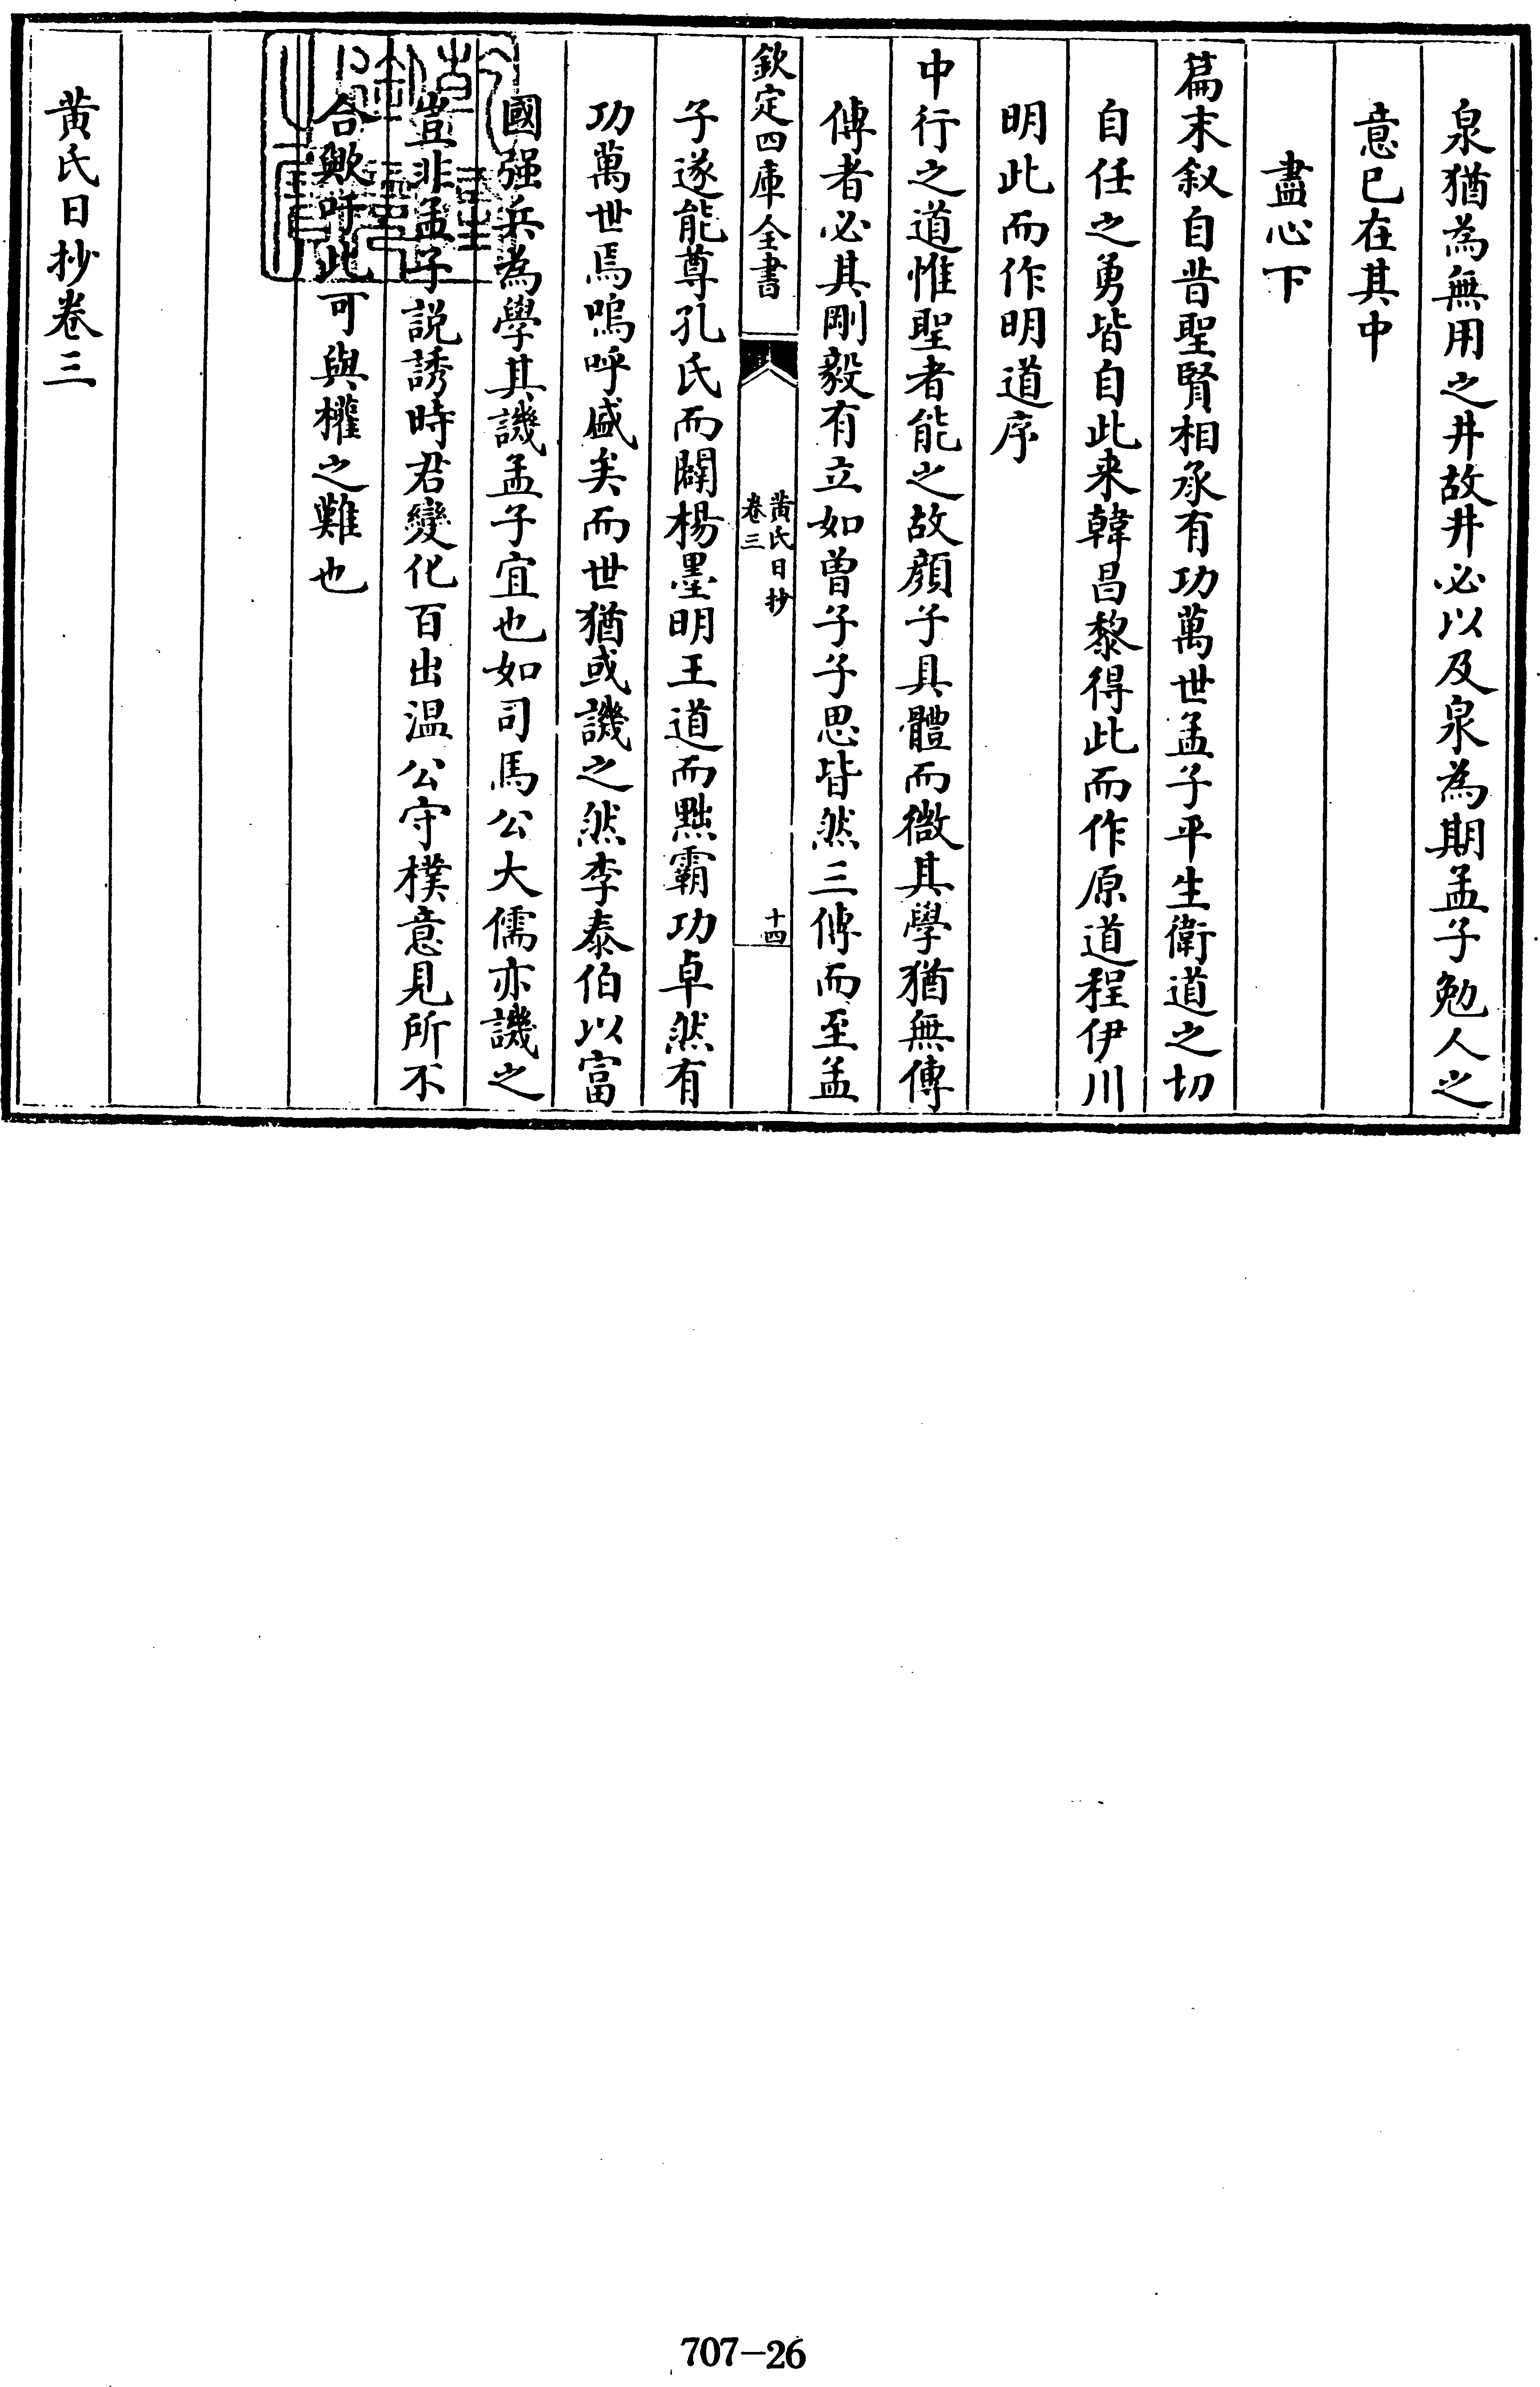 泉猶為無用之井故井必以及泉為期孟子勉人之
意已在其中
盡心下
篇末叙自昔聖賢相承有功萬世孟子平生衛道之切
自任之勇皆自此来韓昌黎得此而作原道程伊川
明此而作明道序
中行之道惟聖者能之故顔子具體而微其學猶無傳
傳者必其剛毅有立如曾子子思皆然三傳而至孟
欽定四庫全書
黄氏日抄
卷三
十四
子遂能尊孔氏而闢楊墨明王道而黜霸功卓然有
功萬世焉嗚呼盛矣而世猶或譏之然李泰伯以富
國强兵為學其譏孟子宜也如司馬公大儒亦譏之
豈非孟子説誘時君變化百出温公守樸意見所不
合歟吁此可與權之難也
黄氏日抄卷三
707-26